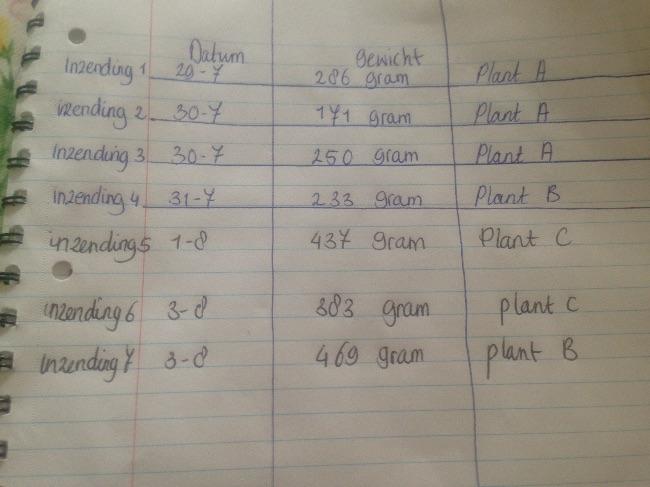 Datum gewicht
Inzending 1 29-7 286 gram Plant A
inzending 2 30-7 171 gram Plant A
Inzending 3 30-7 250 gram Plant A
inzending 4 31-7 233 gram Plant B
inzending 5 1-8 437 gram Plant C
inzending 6 3-8 383 gram plant C
Inzending 7 3-8 469 gram plant B